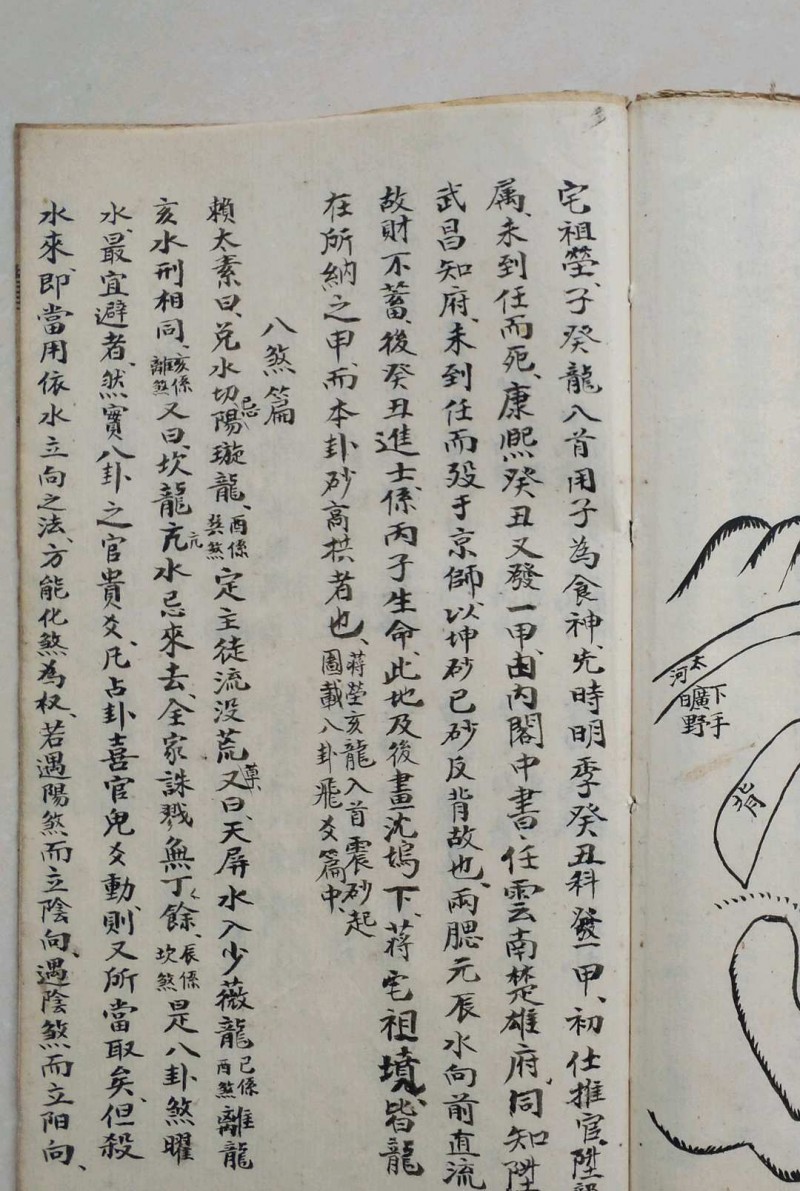 宅祖塋、子癸龍八首用子為食神、先時明季癸丑科發一甲、初仕推官、陞部
属、未到任而死、康熙癸丑又發一甲、由內閣中書、任雲南楚雄府、同知陞
武昌知府、未到任而殁于京師、以坤砂巳砂反背故也、兩腮元辰水向前直流
故財不蓄、後癸丑進士、係丙子生命、此地及後畫沈塢下、蔣宅祖墳、皆龍
在所納之甲、而本卦砂高拱者也、蔣塋亥龍入首震砂起
圖載八卦飛爻篇中、
八煞篇
賴太素曰、兌水切忌陽璇龍、酉係巽煞定主徒流没荒又曰、天屏水入少薇龍巳係酉煞離龍
亥水刑相同、亥係離煞又曰、坎龍亢水忌來去、全家誅戮無丁餘、辰係坎煞是八卦煞曜
水、最宜避者、然實八卦之官貴爻、凡占卦喜官鬼爻動、則又所當取矣、但殺
水來、即當用依水立向之法、方能化煞為权、若遇陽煞而立陰向、遇陰煞而立阳向、
太河
下手曠野